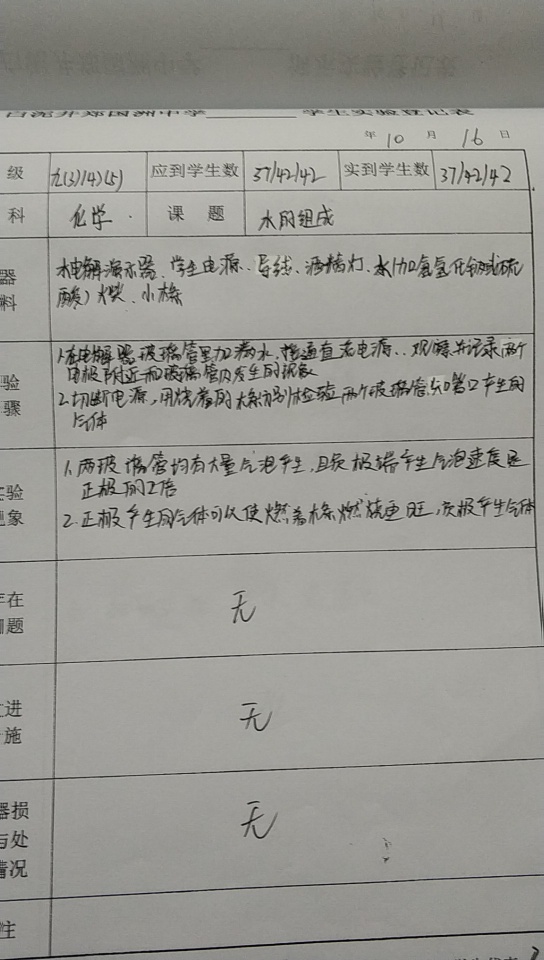 学生实验登记表
年 10 月 16 日
级 九(3)(4)(5) 应到学生数 37/42/42 实到学生数 37/42/42
科 化学 课 题 水的组成
器 水电解演示器、学生电源、导线、酒精灯、水(加氢氧化钠或硫
料 酸)火柴、小木条
1.在电解器玻璃管里加满水,接通直流电源..观察并记录两个
验 电极附近和玻璃管内发生的现象
骤 2.切断电源,用燃着的木条分别检验两个玻璃管尖嘴口产生的
气体
1.两玻璃管均有大量气泡产生,且负极端产生气泡速度是
验 正极的2倍
象 2.正极产生的气体可以使燃着木条燃烧更旺,负极产生气体
在
题 无
进
施 无
器损
与处 无
情况
注